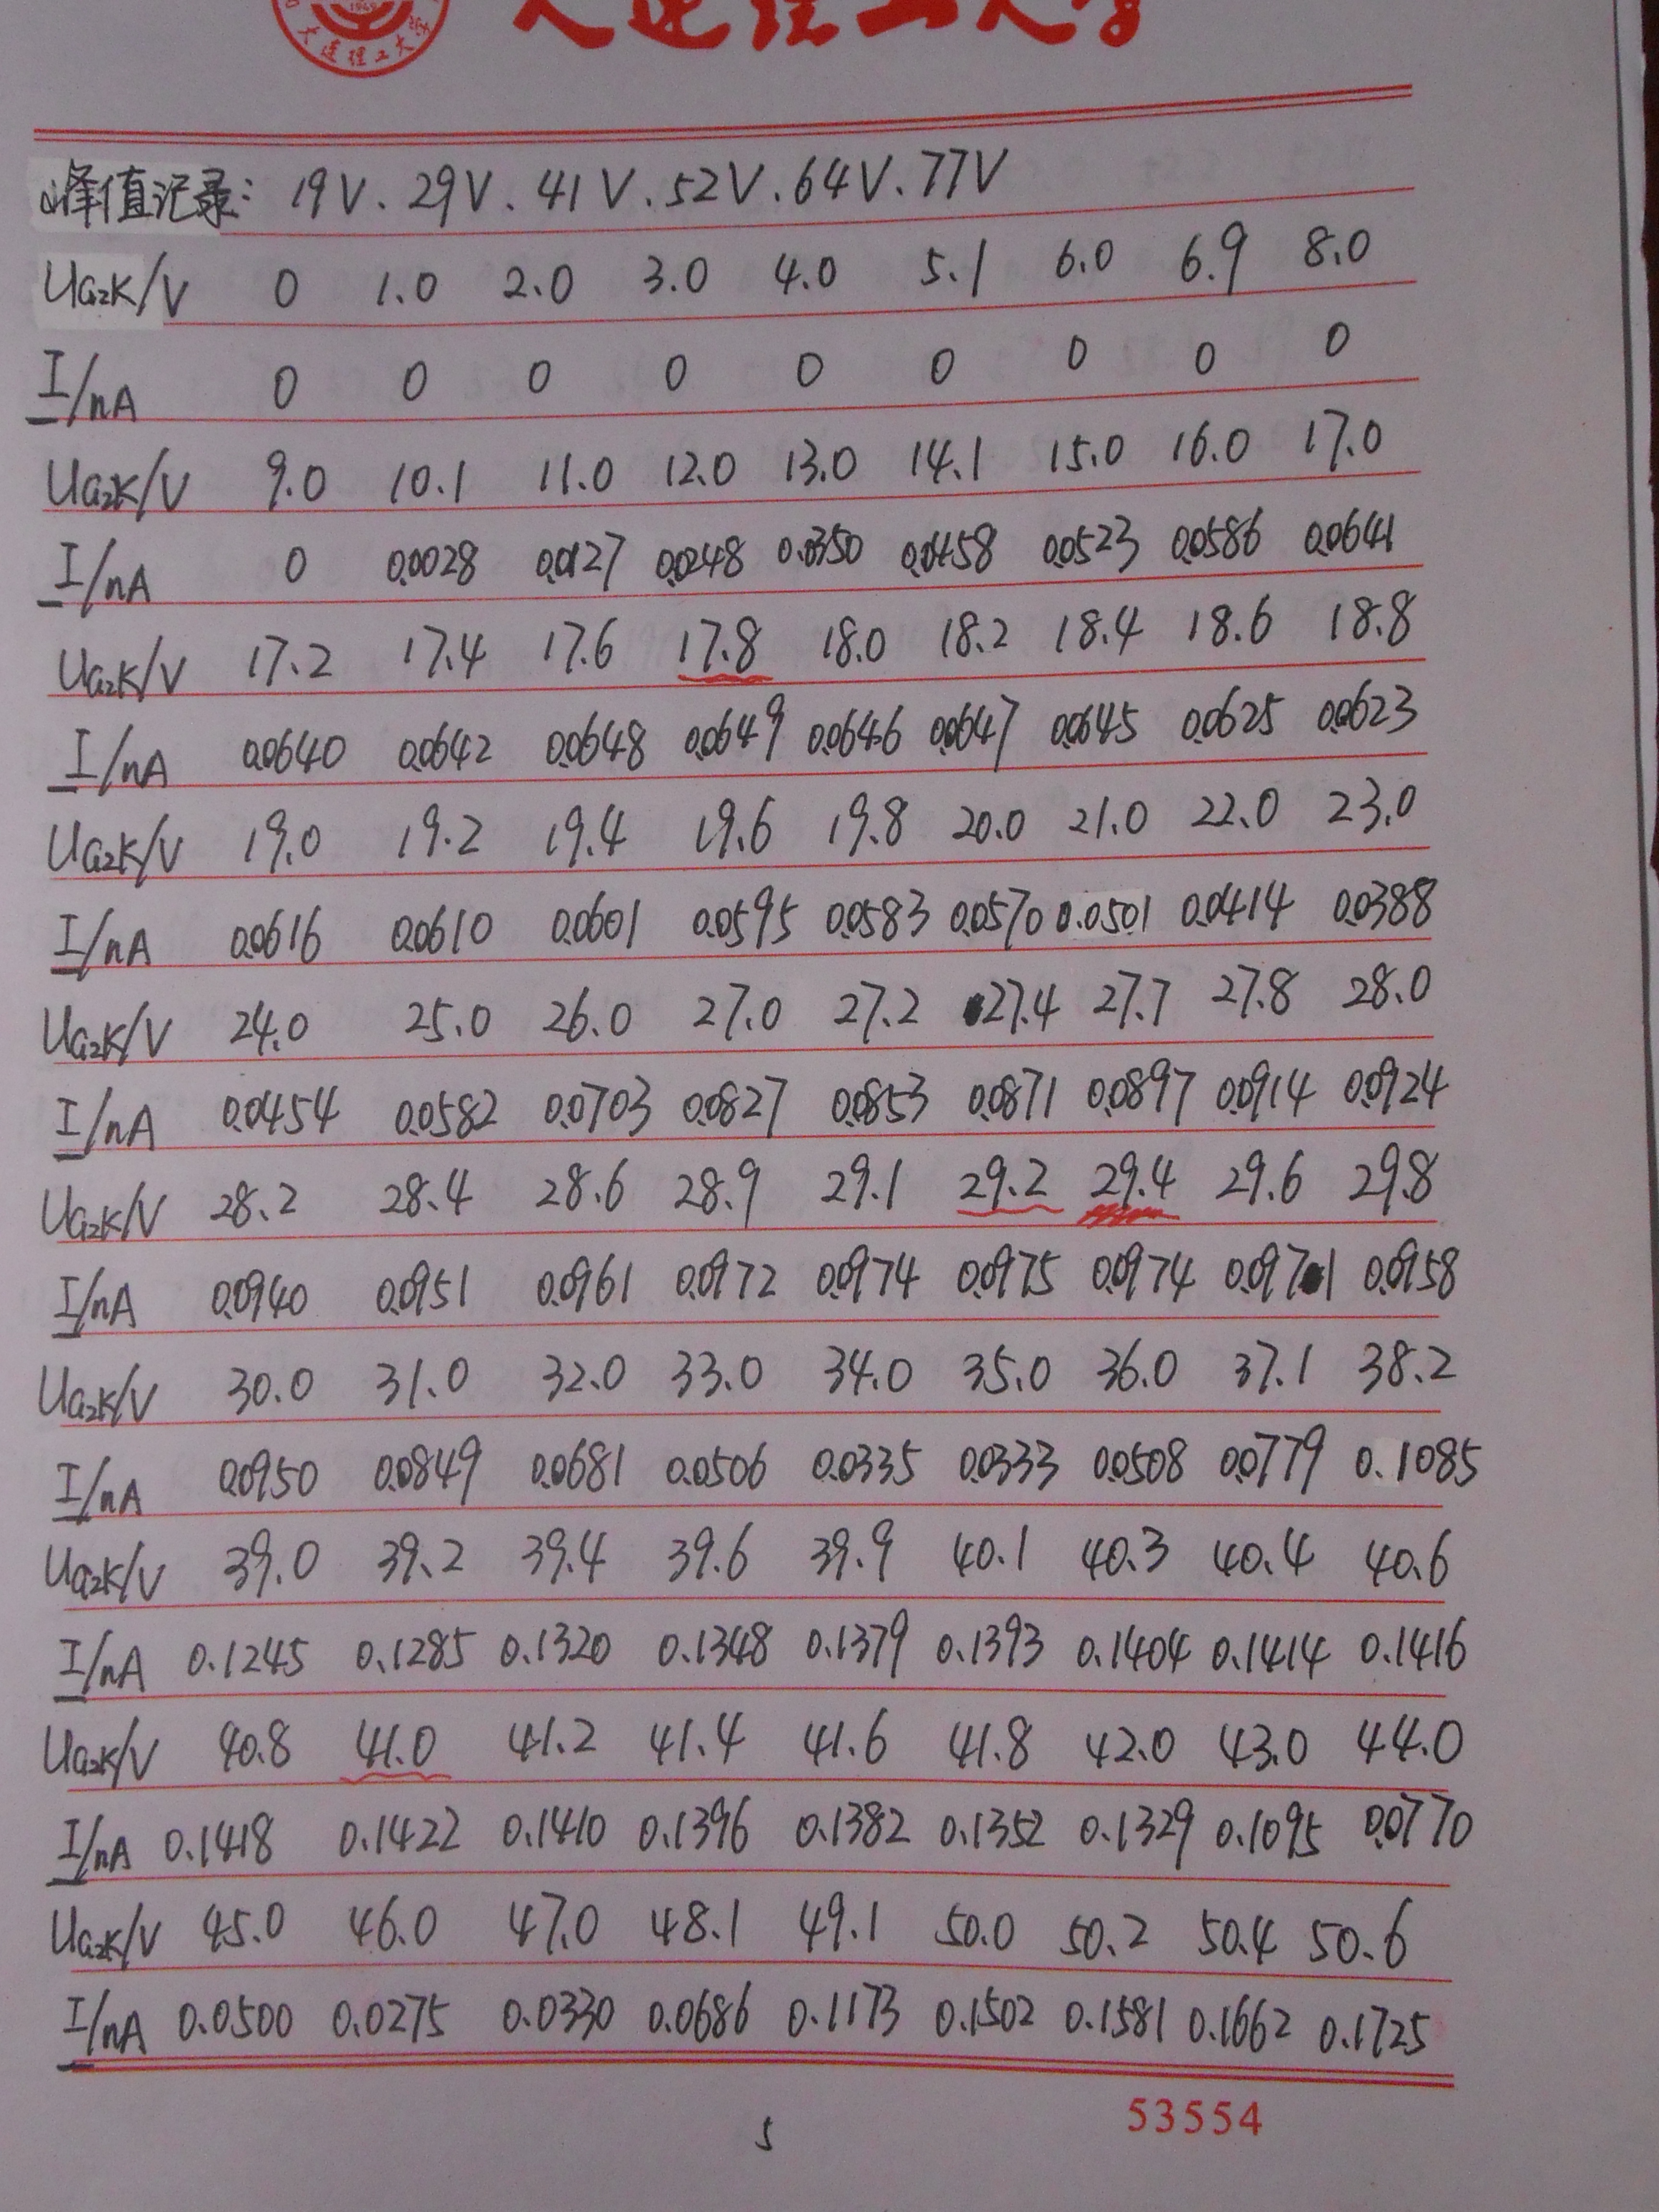 大连理工大学
大连理工大学
峰值记录: 19V、29V、41V、52V、64V、77V
UG₂K/V 0 1.0 2.0 3.0 4.0 5.1 6.0 6.9 8.0
I/nA 0 0 0 0 0 0 0 0 0
UG₂K/V 9.0 10.1 11.0 12.0 13.0 14.1 15.0 16.0 17.0
I/nA 0 0.0028 0.0127 0.0248 0.0350 0.0458 0.0523 0.0586 0.0641
UG₂K/V 17.2 17.4 17.6 17.8 18.0 18.2 18.4 18.6 18.8
I/nA 0.0640 0.0642 0.0648 0.0649 0.0646 0.0647 0.0645 0.0625 0.0623
UG₂K/V 19.0 19.2 19.4 19.6 19.8 20.0 21.0 22.0 23.0
I/nA 0.0616 0.0610 0.0601 0.0595 0.0583 0.0570 0.0501 0.0414 0.0388
UG₂K/V 24.0 25.0 26.0 27.0 27.2 27.4 27.7 27.8 28.0
I/nA 0.0454 0.0582 0.0703 0.0827 0.0853 0.0871 0.0897 0.0914 0.0924
UG₂K/V 28.2 28.4 28.6 28.9 29.1 29.2 29.4 29.6 29.8
I/nA 0.0940 0.0951 0.0961 0.0972 0.0974 0.0975 0.0974 0.0971 0.0958
UG₂K/V 30.0 31.0 32.0 33.0 34.0 35.0 36.0 37.1 38.2
I/nA 0.0950 0.0849 0.0681 0.0506 0.0335 0.0333 0.0508 0.0779 0.1085
UG₂K/V 39.0 39.2 39.4 39.6 39.9 40.1 40.3 40.4 40.6
I/nA 0.1245 0.1285 0.1320 0.1348 0.1379 0.1393 0.1404 0.1414 0.1416
UG₂K/V 40.8 41.0 41.2 41.4 41.6 41.8 42.0 43.0 44.0
I/nA 0.1418 0.1422 0.1410 0.1396 0.1382 0.1352 0.1329 0.1095 0.0770
UG₂K/V 45.0 46.0 47.0 48.1 49.1 50.0 50.2 50.4 50.6
I/nA 0.0500 0.0275 0.0330 0.0686 0.1173 0.1502 0.1581 0.1662 0.1725
53554
5